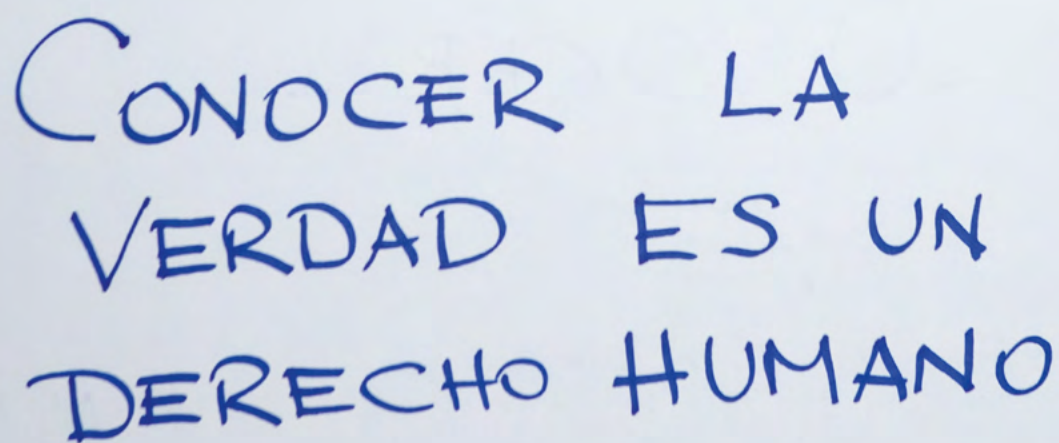 CONOCER LA
VERDAD ES UN
DERECHO HUMANO